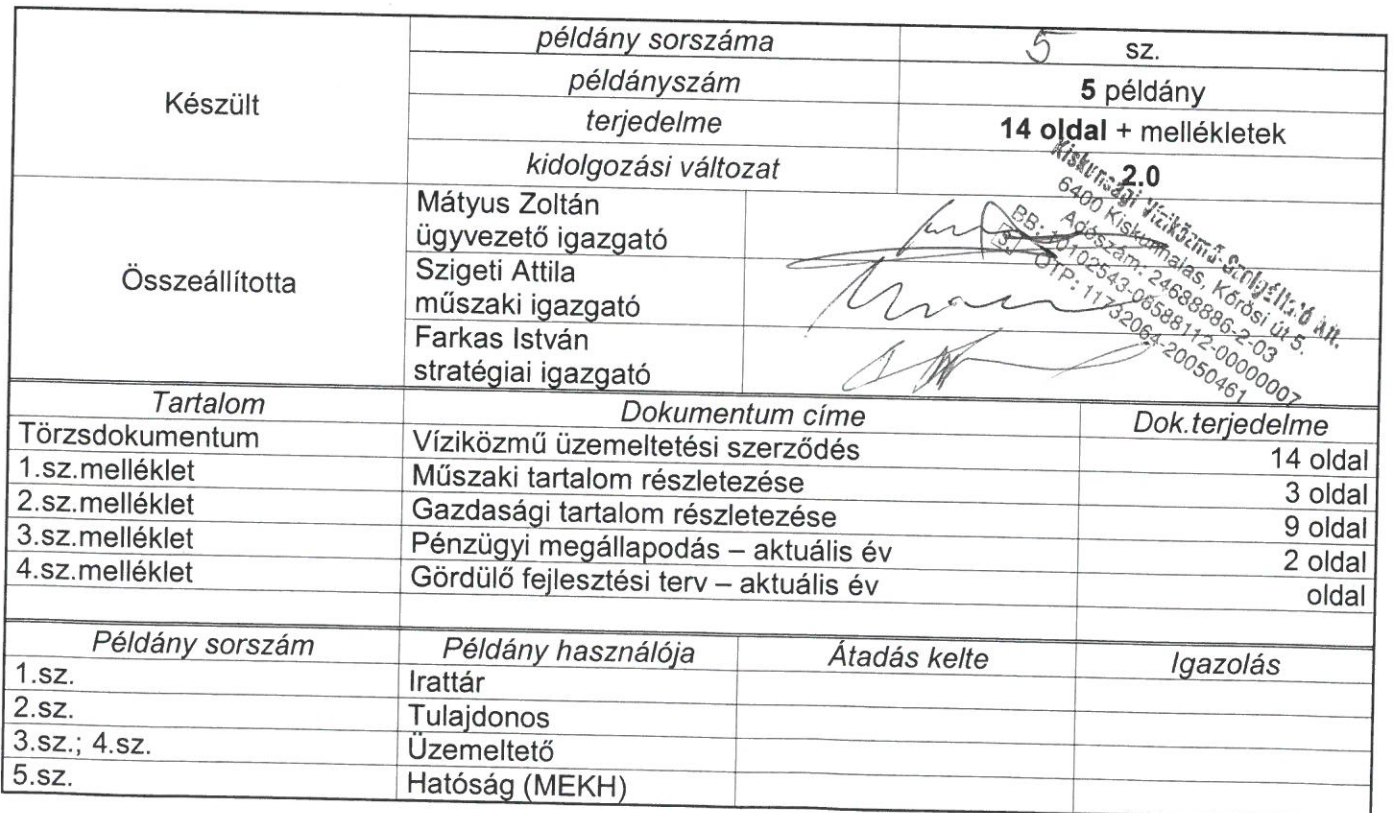 Készült
példány sorszáma 5 sz.
példányszám 5 példány
terjedelme 14 oldal + mellékletek
kidolgozási változat 2.0
Összeállította
Mátyus Zoltán
ügyvezető igazgató
Szigeti Attila
műszaki igazgató
Farkas István
stratégiai igazgató
Kiskunsági Víziközmű-Szolgáltató Kft.
6400 Kiskunhalas, Kőrösi út 5.
Adószám: 24688886-2-03
BB: 10102543-06588112-00000007
3. OTP: 11732064-20050461
Tartalom Dokumentum címe Dok.terjedelme
Törzsdokumentum Víziközmű üzemeltetési szerződés 14 oldal
1.sz.melléklet Műszaki tartalom részletezése 3 oldal
2.sz.melléklet Gazdasági tartalom részletezése 9 oldal
3.sz.melléklet Pénzügyi megállapodás – aktuális év 2 oldal
4.sz.melléklet Gördülő fejlesztési terv – aktuális év oldal
Példány sorszám Példány használója Átadás kelte Igazolás
1.sz. Irattár
2.sz. Tulajdonos
3.sz.; 4.sz. Üzemeltető
5.sz. Hatóság (MEKH)